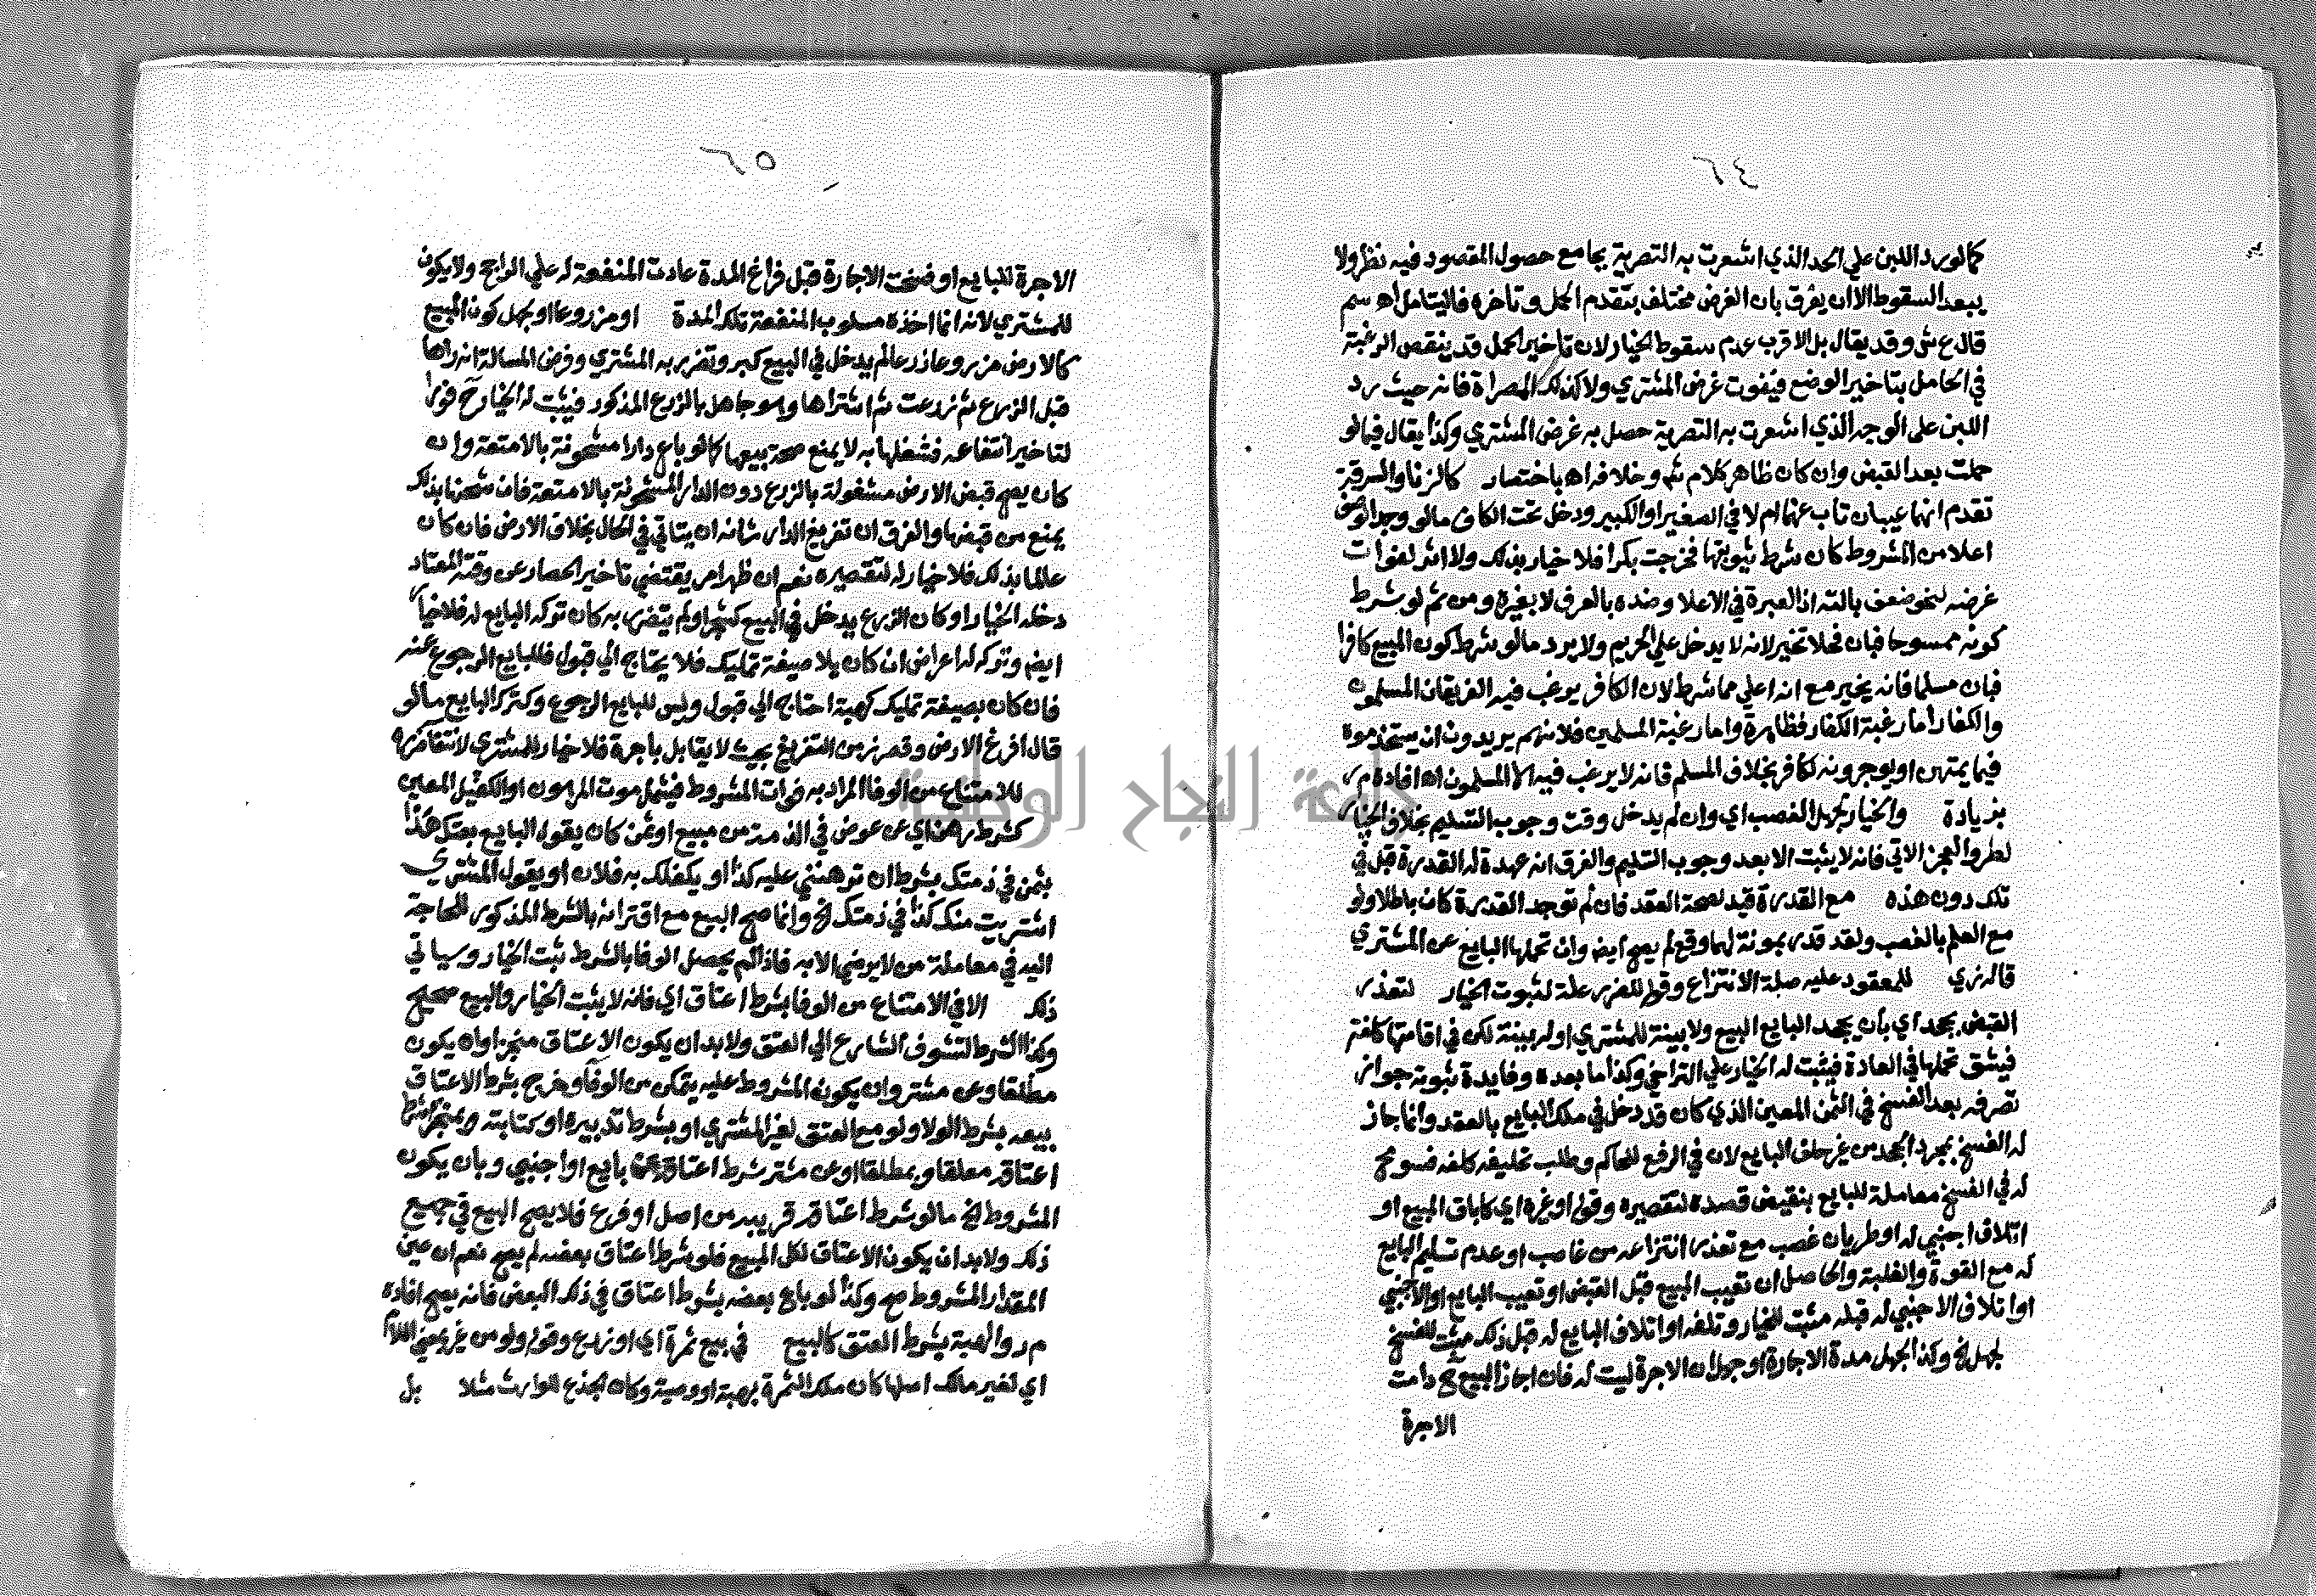 ٦٤
كما لو رد اللبن علي الحد الذي اشعرت به التصرية بجامع حصول المقصود فيه نظر ولا
يبعد السقوط الا ان يفرق بان الغرض مختلف بتقدم الحمل وتاخره فاليتامل اه سم
قال ع ش وقد يقال بل الاقرب عدم سقوط الخيار لان تاخير الحمل قد ينقص الرغبة
في الحامل بتاخير الوضع فيفوت غرض المشتري ولا كذلك المصراة فانه حيث رد
اللبن على الوجه الذي اشعرت به التصرية حصل به غرض المشتري وكذا يقال فيما لو
حملت بعد القبض وان كان ظاهر كلام شـ وخلافه اه باختصار كالزنا والسرقة
تقدم انهما عيبان تاب عنهما ام لا في الصغير او الكبير ودخل تحت الكاف ما لو وجد الوصف
اعلا من المشروط كان شرط ثيوبتها فخرجت بكرا فلا خيار بذلك ولا اثر لفوات
غرضه لنحو ضعف بالته اذ العبرة في الاعلا وضده بالعرف لا بغيره ومن ثم لو شرط
كونه ممسوحا فبان فحلا تخير لانه لا يدخل علي الحريم ولا يرد ما لو شرط كون المبيع كافرا
فبان مسلما فانه يخير مع انه اعلي مما شرط لان الكافر يرغب فيه الفريقان المسلمون
والكفار اما رغبة الكفار فظاهرة واما رغبة المسلمين فلانهم يريدون ان يستخدموه
فيما يمتهن او يوجرونه لكافر بخلاف المسلم فانه لا يرغب فيه الا المسلمون اه افاده م ر
بزيادة والخيار بجهل الغصب اي وان لم يدخل وقت وجوب التسليم بخلاف الخيار
لطرو العجز الاتي فانه لا يثبت الا بعد وجوب التسليم والفرق انه عهد له القدرة قبل في
تلك دون هذه مع القدرة قيد لصحة العقد فان لم توجد القدرة كان باطلا ولو
مع العلم بالغصب ولقد قدر بمونة لها وقع لم يصح ايضا وان تحملها البايع عن المشتري
قاله زي للمعقود عليه صلة الانتزاع وقوله للضرر علة لثبوت الخيار لتعذر
القبض بجحد اي بان يجحد البايع البيع ولا بينة للمشتري او له بينة لكن في اقامتها كلفة
فيشق تحملها في العادة فيثبت له الخيار علي التراخي وكذا ما بعده وفايدة ثبوته جواز
تصرفه بعد الفسخ في الثمن المعين الذي كان قد دخل في ملك البايع بالعقد وانما جاز
له الفسخ بمجرد الجحد من غير حلف البايع لان في الرفع للحاكم وطلب تحليفه كلفه فسومح
له في الفسخ معاملة للبايع بنقيض قصده لتقصيره وقوله او غيره اي كاباق المبيع او
اتلاف اجنبي له او طريان غصب مع تعذر انتزاعه من غاصب او عدم تسليم البايع
له مع القوة والغلبة والحاصل ان تعيب المبيع قبل القبض او تعيب البايع او الاجنبي
او اتلاف الاجنبي له قبله مثبت للخيار وتلفه او اتلاف البايع له قبل ذلك مثبت للفسخ
بجهل الخ وكذا الجهل مدة الاجارة او جهل ان الاجرة ليت له فان اجاز البيع ح دامت
الاجرة
٦٥
الاجرة للبايع او فسخت الاجارة قبل فراغ المدة عادت المنفعة له علي الراجح ولا يكون
للمشتري لانه انما اخذه مسلوب المنفعة تلك المدة او مزروعا او بجهل كون المبيع
كالارض مزروعا زرعا لم يدخل في البيع كبر وتضرر به المشتري وفرض المسالة انه راها
قبل الزرع ثم زرعت ثم اشتراها وهو جاهل بالزرع المذكور فيثبت له الخيار ح فورا
لتاخير انتفاعه فشغلها به لا يمنع صحة بيعها كما لو باع دارا مشحونة بالامتعة وان
كان يصح قبض الارض مشغولة بالزرع دون الدار المشحونة بالامتعة فان شحنها بذلك
يمنع من قبضها والفرق ان تفريغ الدار شانه ان يتاتي في الحال بخلاف الارض فان كان
عالما بذلك فلا خيار له لتقصيره نعم ان ظهر امر يقتضي تاخير الحصار عن وقته المعتاد
دخله الخيار او كان الزرع يدخل في البيع كشجر او لم يتضرر به كان تركه البايع له فلا خيار
ايضا وتركه له اعراض ان كان بلا صيغة تمليك فلا يحتاج الي قبول فللبايع الرجوع عنه
فان كان بصيغة تمليك كهبة احتاج الي قبول وليس للبايع الرجوع وكترك البايع ما لو
قال افرغ الارض وقصر زمن التفريغ بحيث لا يقابل باجرة فلا خيار للمشتري لانتفا ضرره
للامتناع من الوفا المراد به فوات المشروط فيشمل موت المرهون او الكفيل المعين
كشرط رهن اي عن عوض في الذمة من مبيع او ثمن كان يقول البايع بعتك هذا
بثمن في ذمتك بشرط ان ترهنني عليه كذا او يكفلك به فلان او يقول المشتري
اشتريت منك كذا في ذمتك الخ وانما صح البيع مع اقترانه بالشرط المذكور للحاجة
اليه في معاملة من لا يرضي الا به فاذا لم يحصل الوفا بالشرط ثبت الخيار وسياتي
ذلك الا في الامتناع من الوفا بشرط اعتاق اي فانه لا يثبت الخيار والبيع صحيح
وكذا الشرط لتشوف الشارع الي العتق ولا بد ان يكون الاعتاق منجزا وان يكون
مطلقا وعن مشتر وان يكون المشروط عليه يتمكن من الوفا وخرج بشرط الاعتاق
بيعه بشرط الولا ولو مع العتق لغير المشتري او بشرط تدبيره او كتابته وبمنجز شرط
اعتاقه معلقا وبمطلقا او عن مشتر شرط اعتاقه عن بايع او اجنبي وبان يكون
المشروط الخ ما لو شرط اعتاق قريبه من اصل او فرع فلا يصح البيع في جميع
ذلك ولا بد ان يكون الاعتاق لكل المبيع فلو شرط اعتاق بعضه لم يصح نعم ان عين
المقدار المشروط صح وكذا لو باع بعضه بشرط اعتاق في ذلك البعض فانه يصح افاده
م ر والهبة بشرط العتق كالبيع في بيع ثمرة اي او زرع وقوله ولو من غير يعني اللام
اي لغير مالك اصلها كان ملك الثمرة بهبة او وصية وكان الجذع لوارث مثلا بل
جامعة النجاح الوطنية